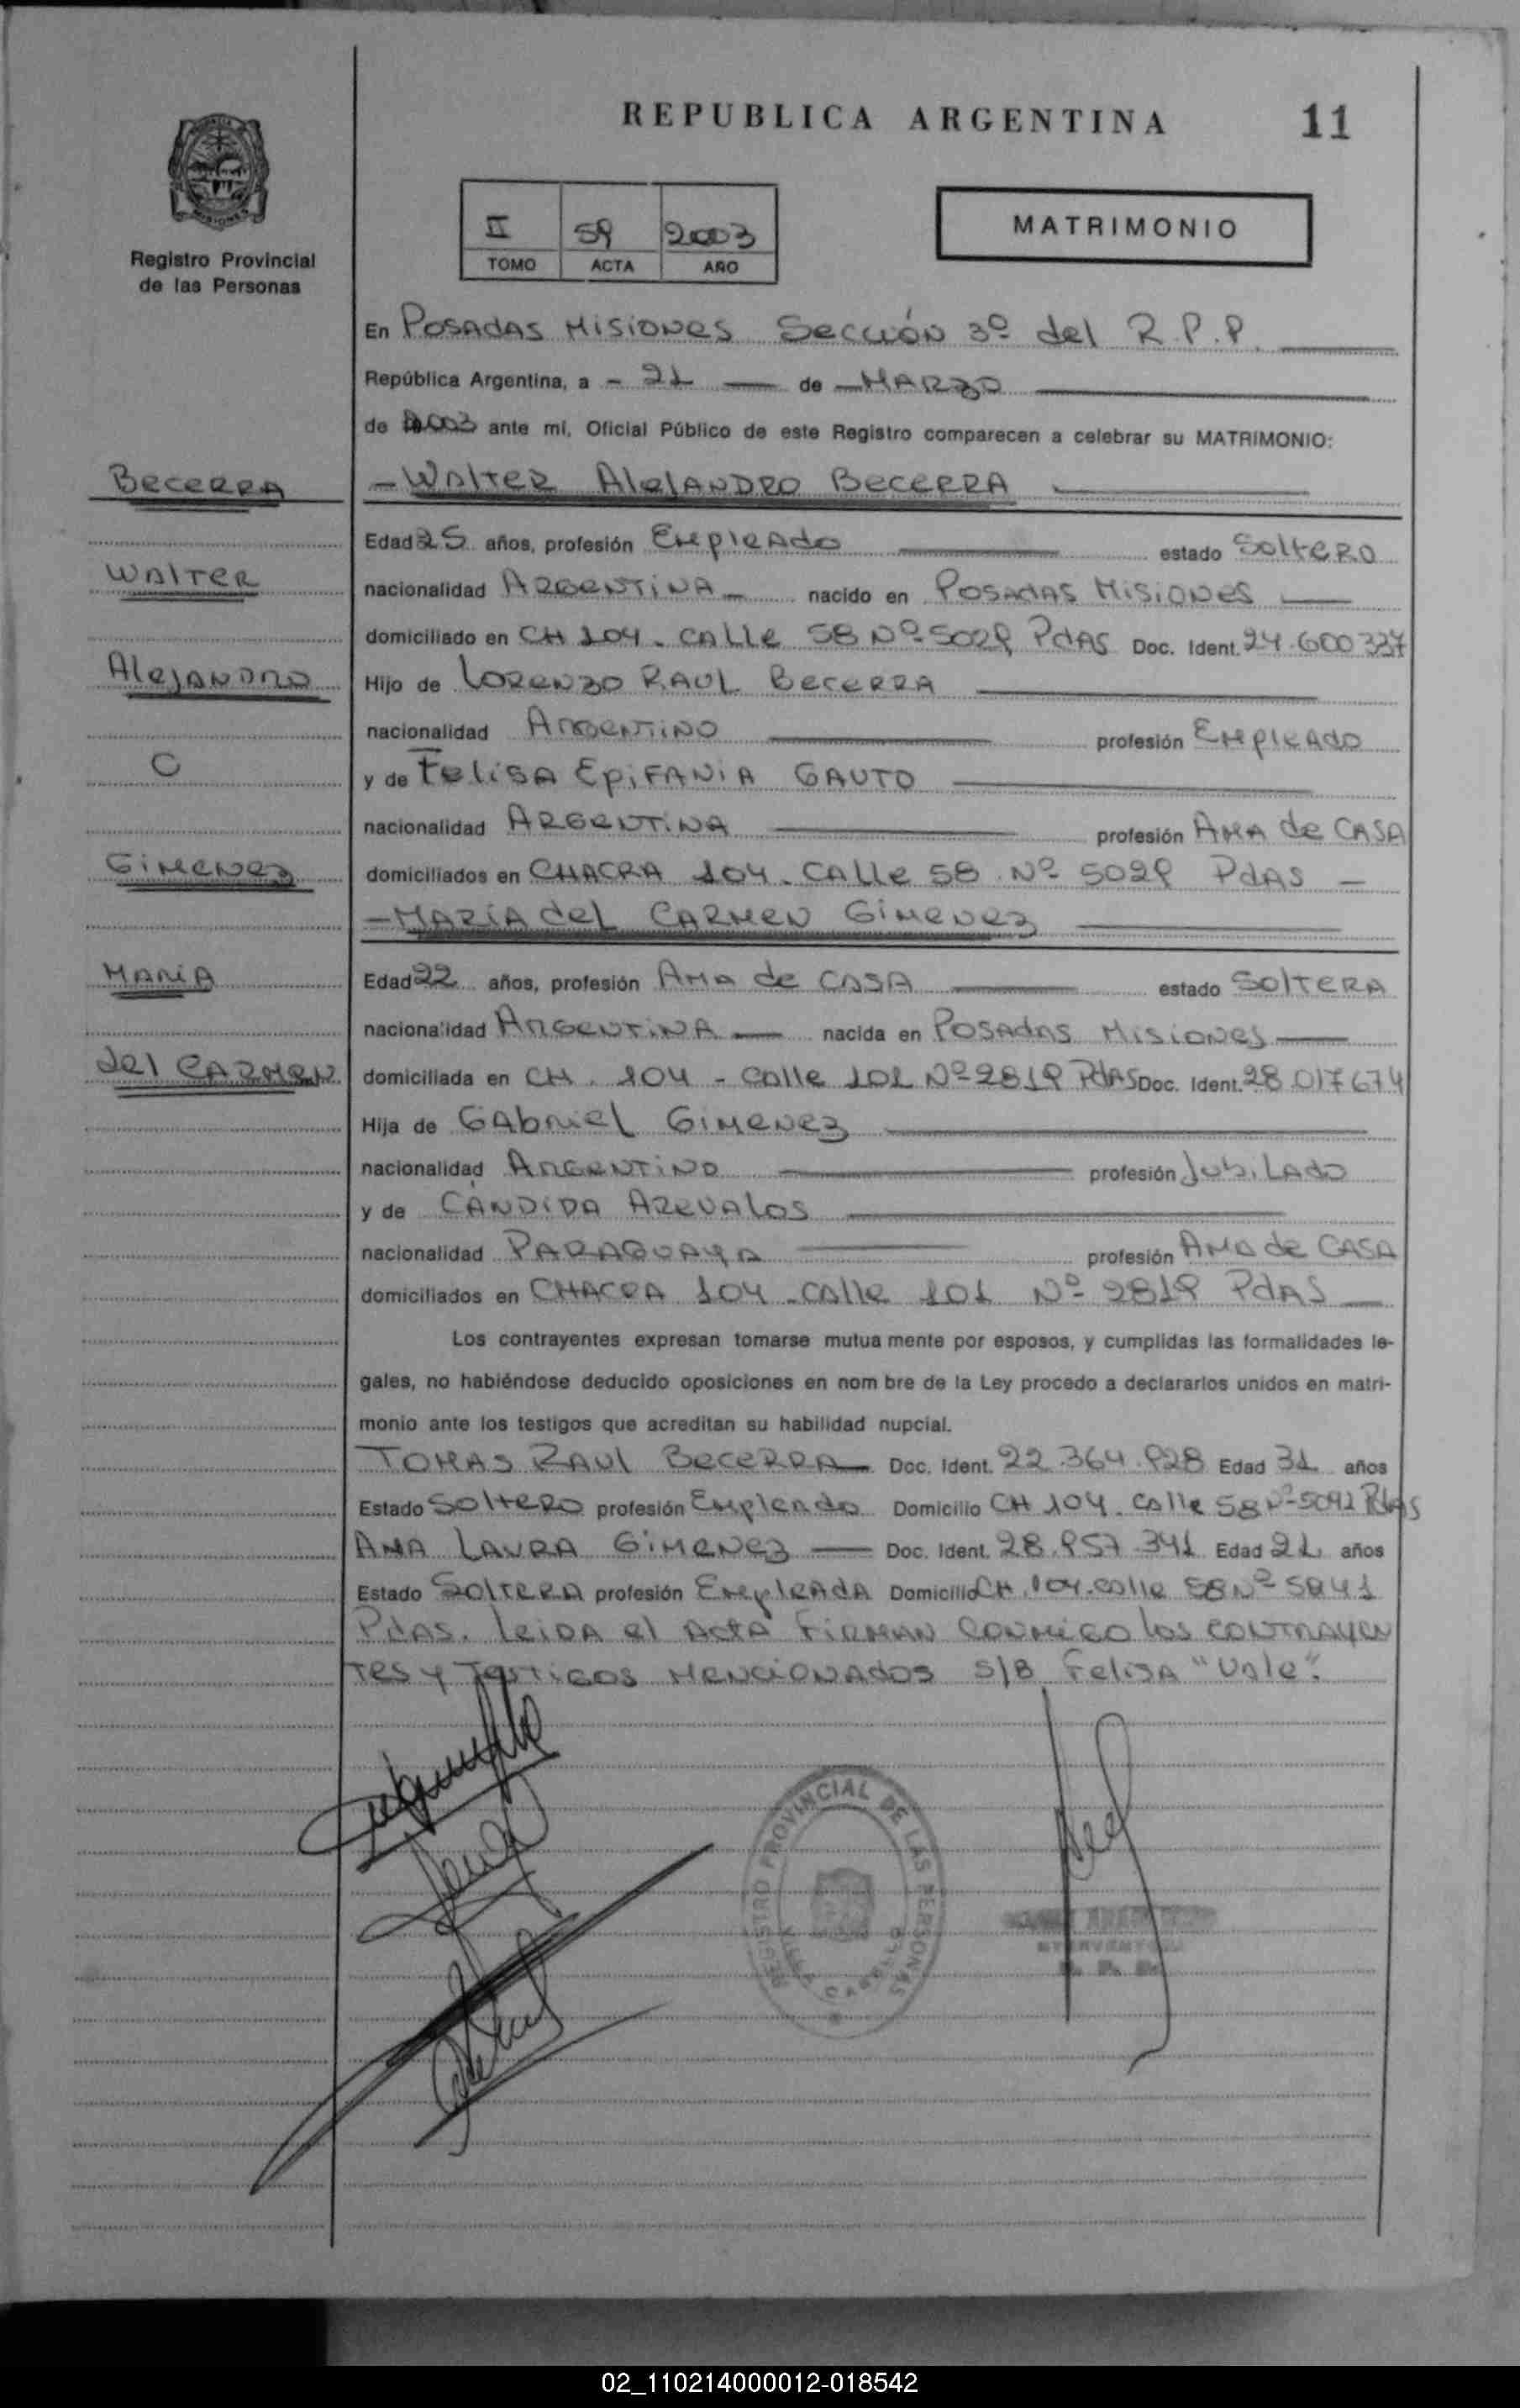 REPUBLICA ARGENTINA 11
II 59 2003
TOMO ACTA AÑO
MATRIMONIO
Registro Provincial
de las Personas
En Posadas Misiones Sección 3º del R.P.P.
República Argentina, a - 21 — de — MARZO
de 2003 ante mí, Oficial Público de este Registro comparecen a celebrar su MATRIMONIO:
Becerra
- Walter Alejandro Becerra
Edad 25 años, profesión Empleado estado Soltero
Walter
nacionalidad Argentina nacido en Posadas Misiones
domiciliado en CH 104. Calle 58 Nº 5029 Pdas Doc. Ident. 24.600337
Alejandro
Hijo de Lorenzo Raul Becerra
nacionalidad Argentino profesión Empleado
C
y de Felisa Epifania Gauto
nacionalidad Argentina profesión Ama de Casa
Gimenez
domiciliados en Chacra 104. Calle 58 Nº 5029 Pdas -
- Maria del Carmen Gimenez
Maria
Edad 22 años, profesión Ama de Casa estado Soltera
nacionalidad Argentina nacida en Posadas Misiones
del Carmen
domiciliada en CH. 104 - Calle 101 Nº 2819 Pdas Doc. Ident. 28.017674
Hija de Gabriel Gimenez
nacionalidad Argentino profesión Jubilado
y de Cándida Arevalos
nacionalidad Paraguaya profesión Ama de Casa
domiciliados en Chacra 104 - Calle 101 Nº 2819 Pdas
Los contrayentes expresan tomarse mutua mente por esposos, y cumplidas las formalidades le-
gales, no habiéndose deducido oposiciones en nom bre de la Ley procedo a declararlos unidos en matri-
monio ante los testigos que acreditan su habilidad nupcial.
Tomas Raul Becerra Doc. Ident. 22.364.928 Edad 31 años
Estado Soltero profesión Empleado Domicilio CH 104. Calle 58 Nº 5041 Pdas
Ana Laura Gimenez Doc. Ident. 28.957.341 Edad 21 años
Estado Soltera profesión Empleada Domicilio CH. 104. Calle 58 Nº 5041
Pdas. Leida el Acta firman conmigo los contrayen
tes y testigos mencionados S/B Felisa "Vale".
REGISTRO PROVINCIAL DE LAS PERSONAS
02_110214000012-018542